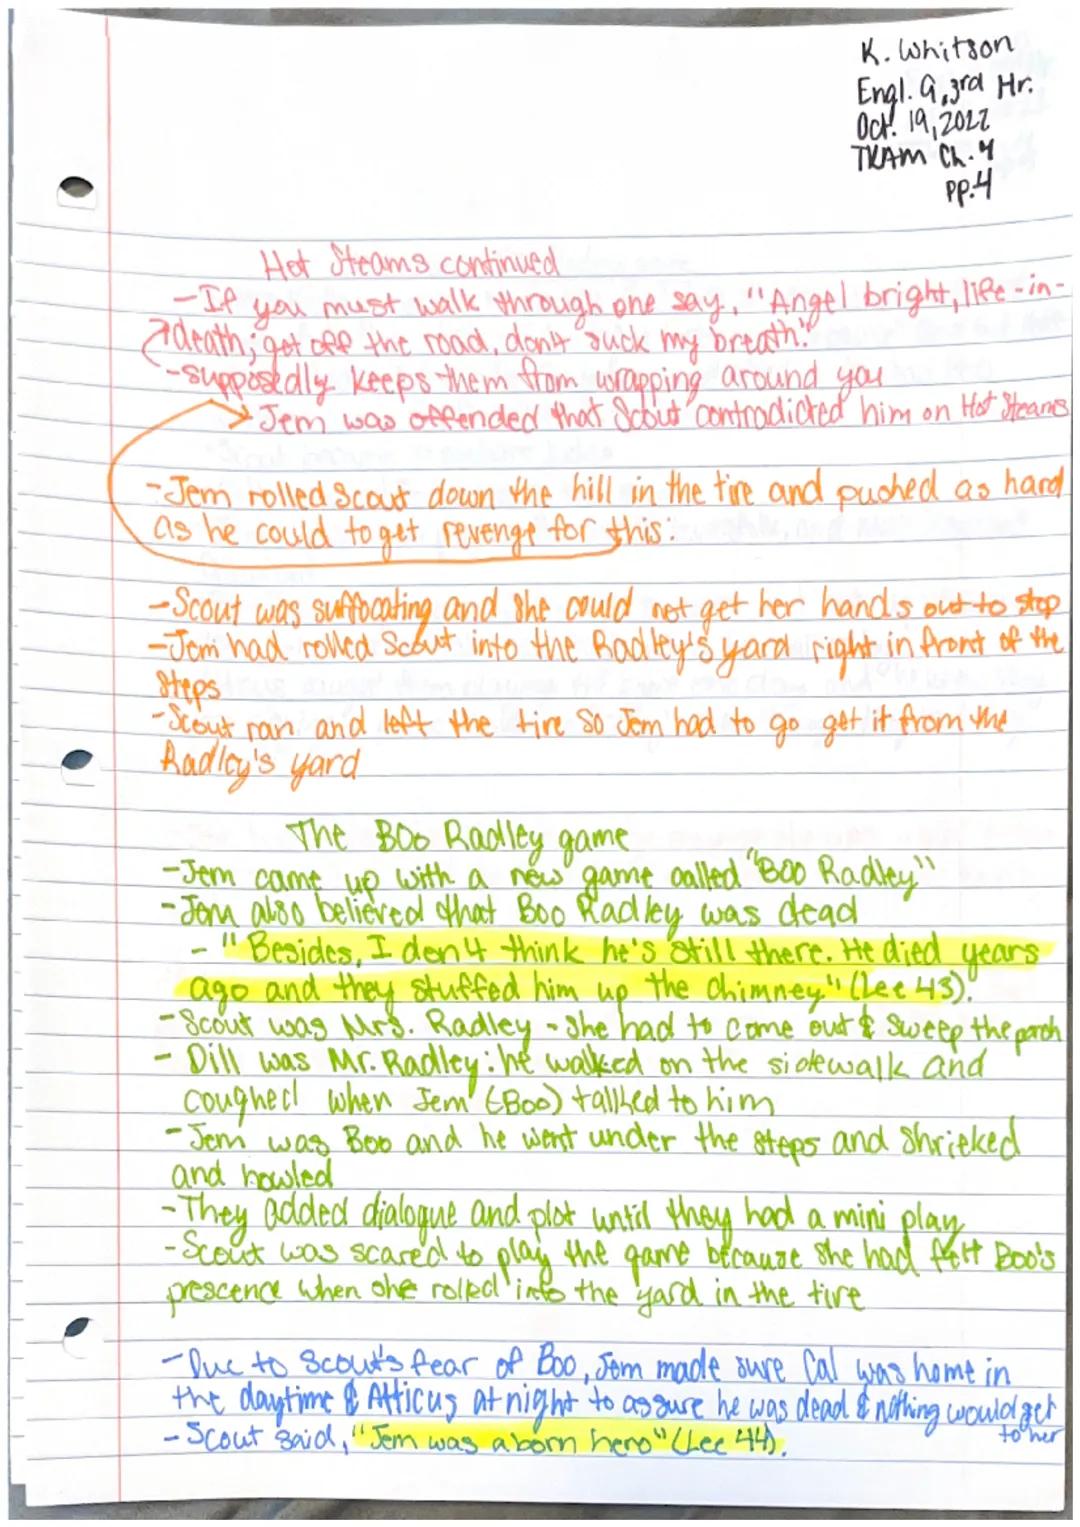 K. Whitson
Engl. 9, 3rd Hr.
Oct. 19, 2022
TKAM Ch. 4
pp. 4
Hot Steams continued
-If you must walk through one say, "Angel bright, life-in-
death; get off the road, don't suck my breath."
-supposedly keeps them from wrapping around you
Jem was offended that Scout contradicted him on Hot Steams
-Jem rolled Scout down the hill in the tire and pushed as hard
as he could to get revenge for this:
-Scout was suffocating and she could not get her hands out to stop
-Jem had rolled Scout into the Radley's yard right in front of the
steps
-Scout ran and left the tire so Jem had to go get it from the
Radley's yard
The Boo Radley game
-Jem came up with a new game called "Boo Radley"
-Jem also believed that Boo Radley was dead
- "Besides, I don't think he's still there. He died years
ago and they stuffed him up the chimney" (Lee 43).
-Scout was Mrs. Radley - she had to come out & sweep the porch
- Dill was Mr. Radley: he walked on the sidewalk and
coughed when Jem (Boo) talked to him
-Jem was Boo and he went under the steps and shrieked
and howled
-They added dialogue and plot until they had a mini play
-Scout was scared to play the game because she had felt Boo's
prescence when she rolled into the yard in the tire
-Due to Scout's fear of Boo, Jem made sure Cal was home in
the daytime & Atticus at night to assure he was dead & nothing would get
to her
-Scout said, "Jem was a born hero" (Lee 44).